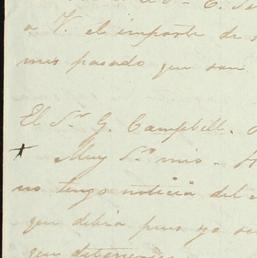 a V. el importe de
mes pasado que son
El Sr G. Campbell.
Muy Sr mio.
no tengo noticia del
que debia pues ya
que